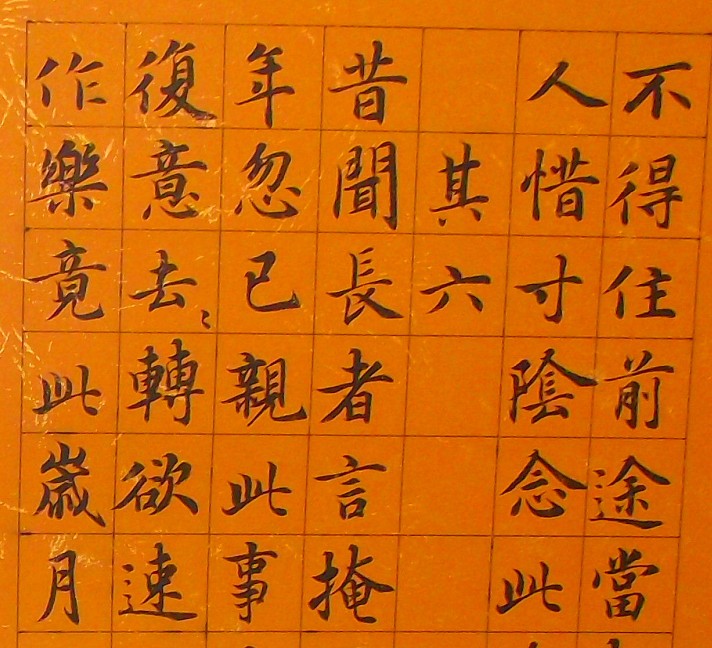 不得住前途當
人惜寸陰念此
其六
昔聞長者言掩
年忽已親此事
復意去〻轉欲速
作樂竟此歲月